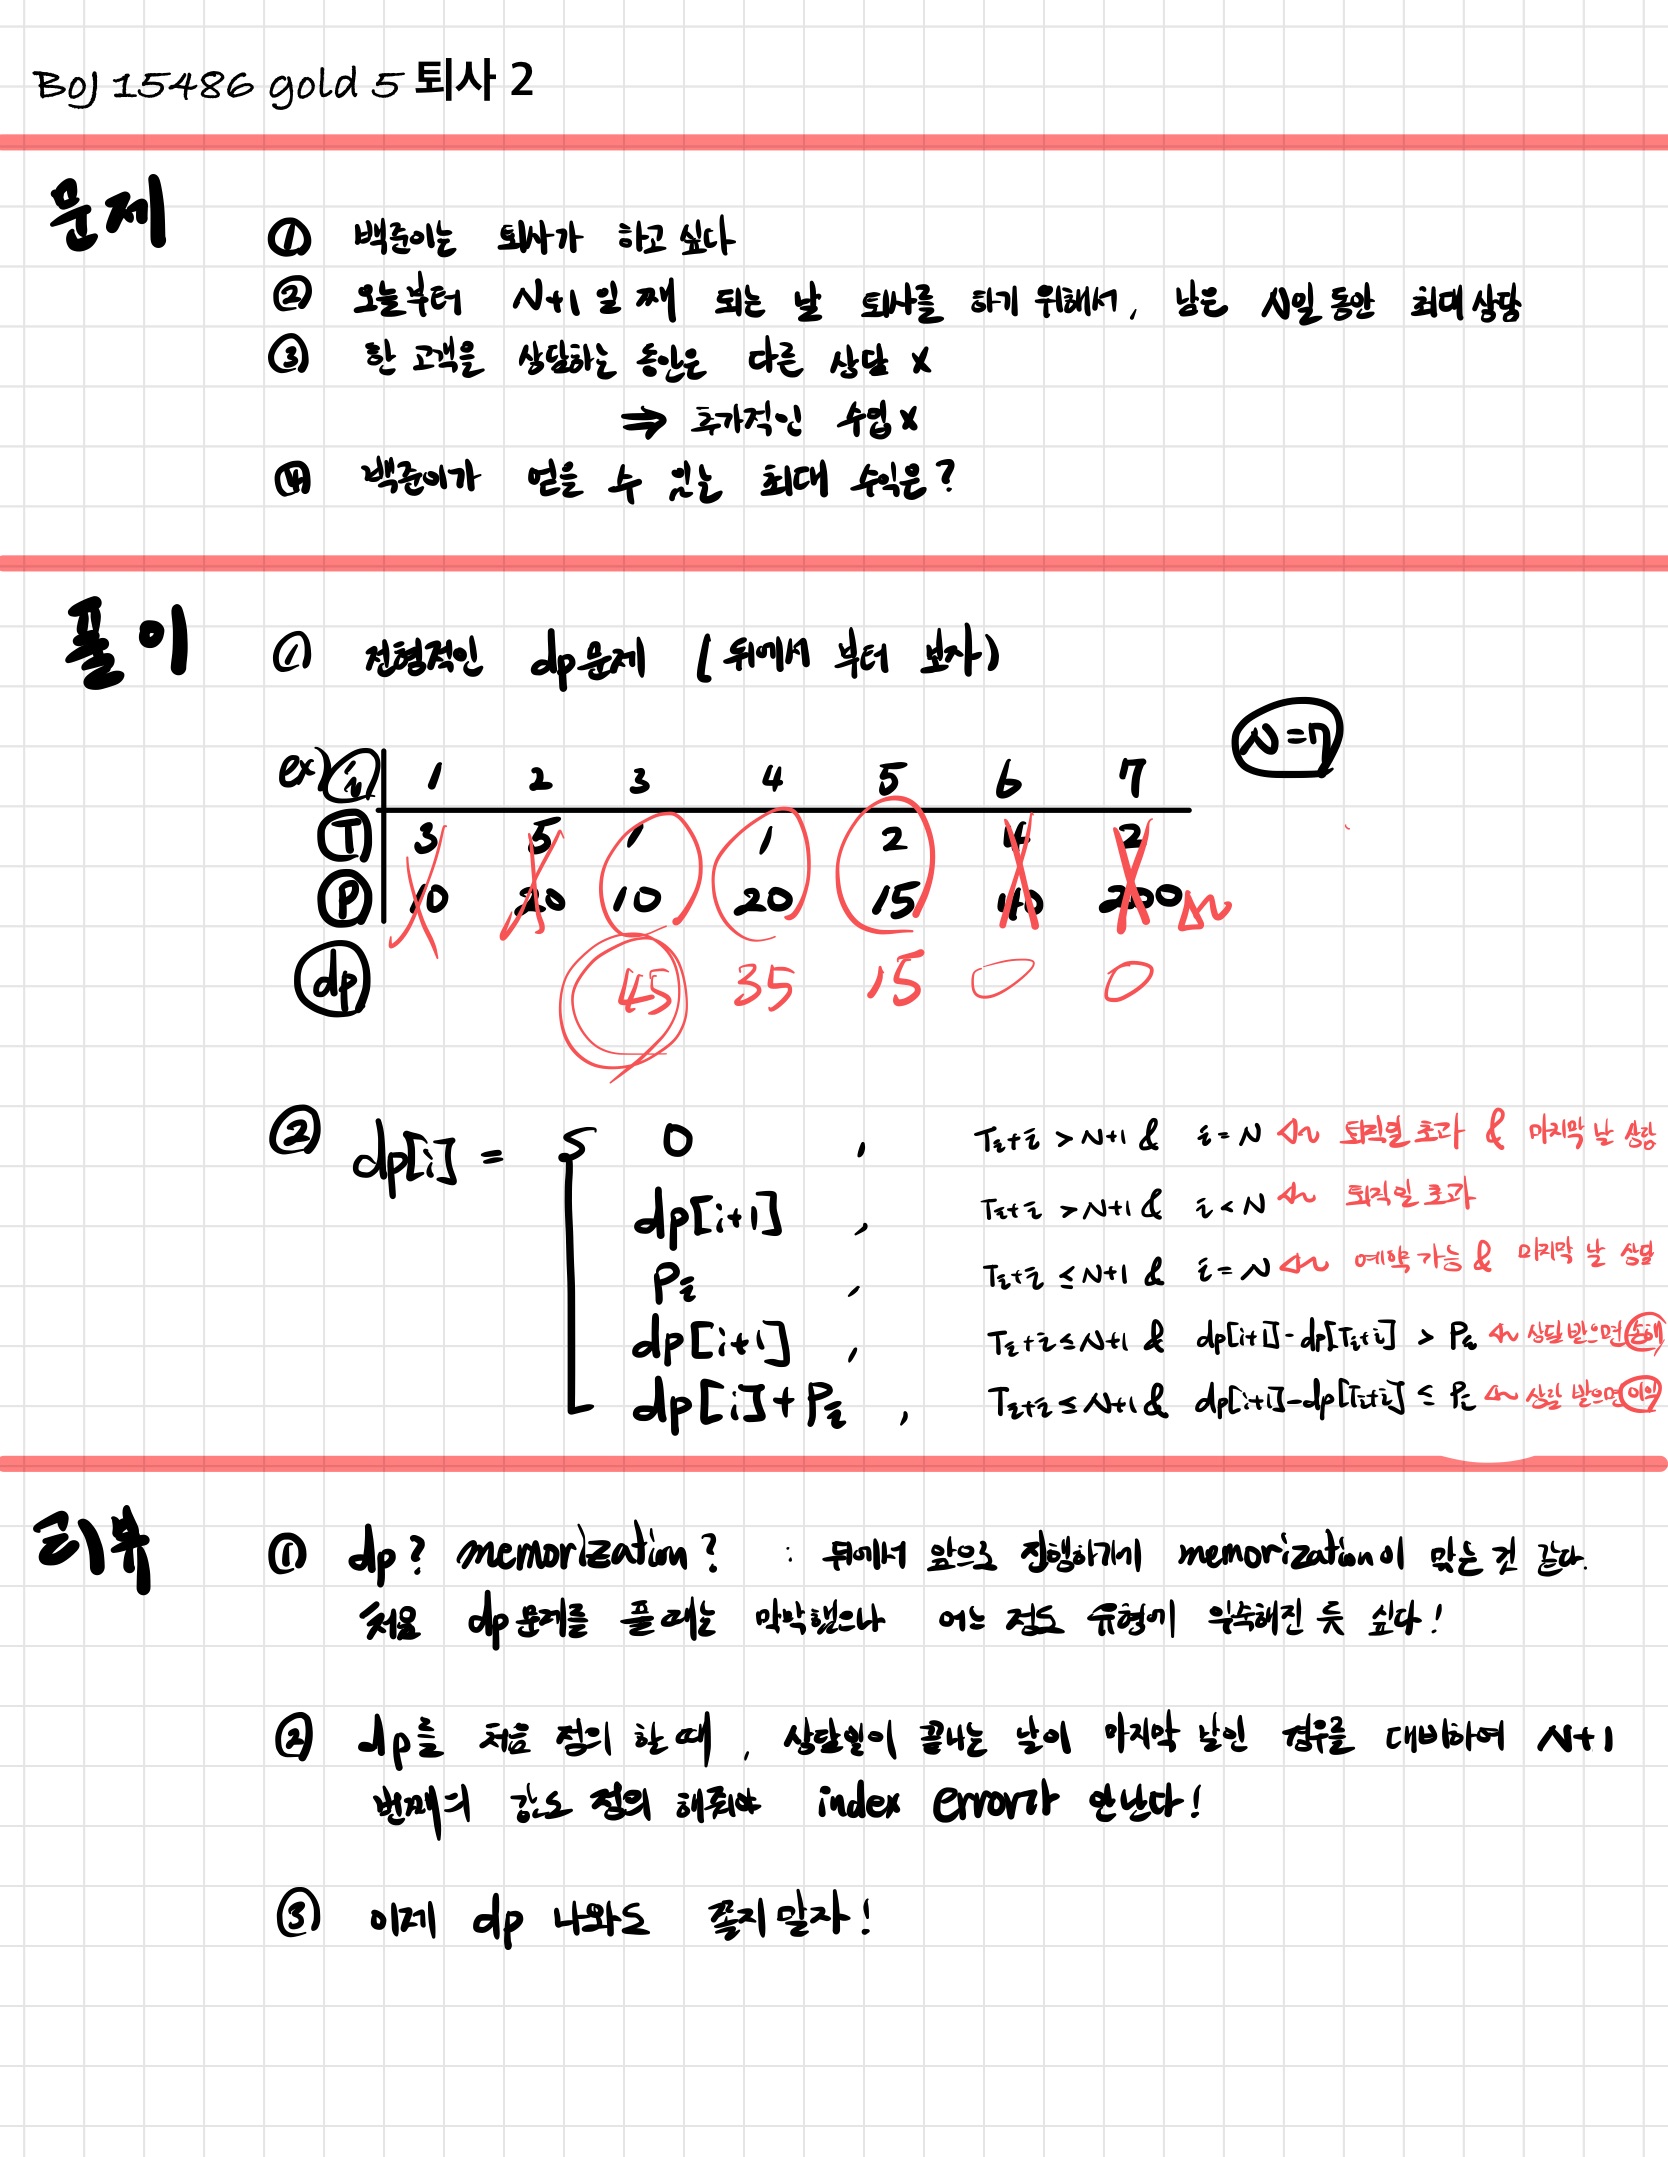 BOJ 15486 gold 5 퇴사 2
문제
① 백준이는 퇴사가 하고 싶다
② 오늘부터 N+1 일 째 되는 날 퇴사를 하기 위해서, 남은 N일 동안 최대 상담
③ 한 고객을 상담하는 동안은 다른 상담 x
⇒ 추가적인 수입 x
④ 백준이가 얻을 수 있는 최대 수익은?
풀이
① 전형적인 dp문제 (뒤에서 부터 보자)
N=7
ex) i 1 2 3 4 5 6 7
T 3 5 1 1 2 4 2
P 10 20 10 20 15 40 200
dp 45 35 15 0 0
② dp[i] = { 0 , Ti+i > N+1 & i = N 퇴직일 초과 & 마지막 날 상담
dp[i+1] , Ti+i > N+1 & i < N 퇴직일 초과
Pi , Ti+i ≤ N+1 & i = N 예약 가능 & 마지막 날 상담
dp[i+1] , Ti+i ≤ N+1 & dp[i+1] - dp[Ti+i] > Pi 상담 받으면 손해
dp[i]+Pi , Ti+i ≤ N+1 & dp[i+1] - dp[Ti+i] ≤ Pi 상담 받으면 이익
리뷰
① dp? memorization? : 뒤에서 앞으로 진행하기에 memorization이 맞는 것 같다.
처음 dp문제를 풀 때는 막막했으나 어느 정도 유형에 익숙해진 듯 싶다!
② dp를 처음 정의 할 때, 상담일이 끝나는 날이 마지막 날인 경우를 대비하여 N+1
번째의 값도 정의 해줘야 index error가 안난다!
③ 이제 dp 나와도 쫄지 말자!